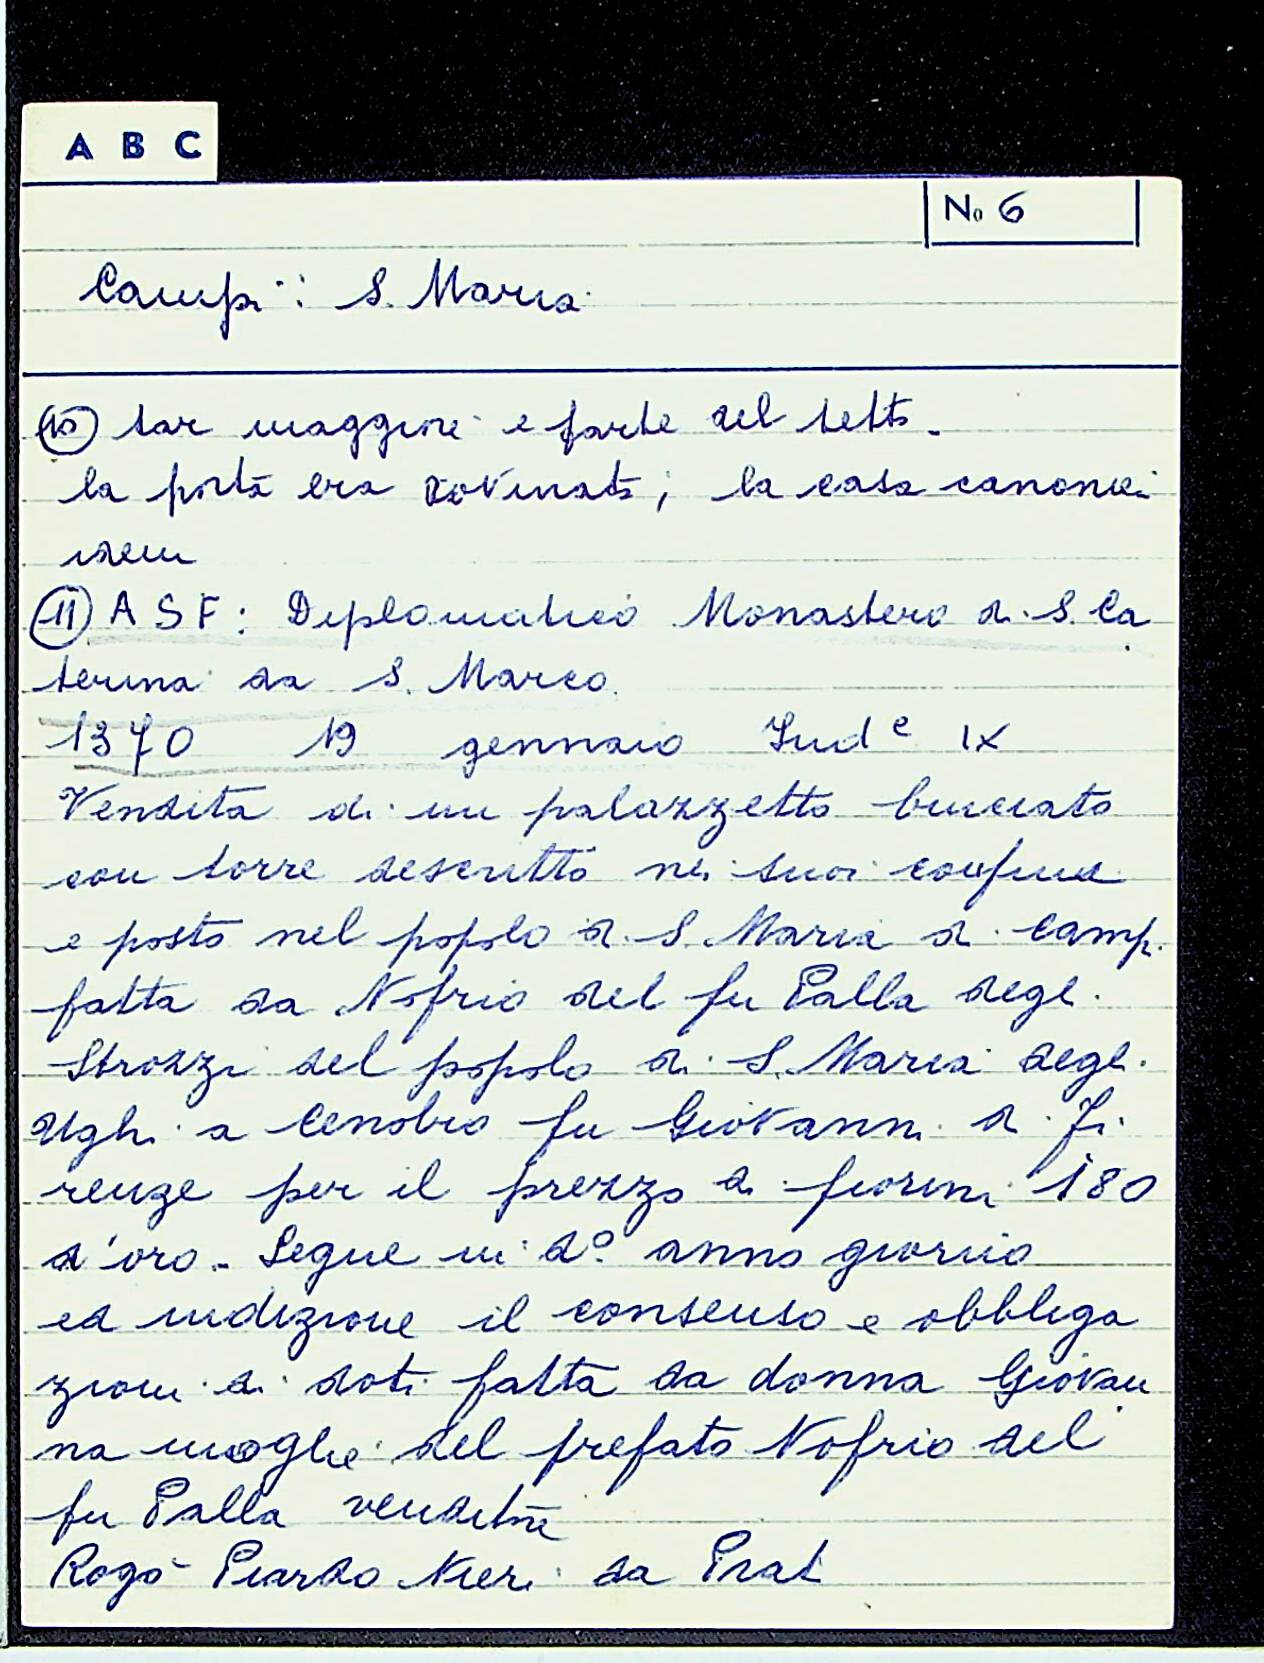 A B C
No 6
Campi: S. Maria
10 tar maggiore e parte del tetto.
la porta era rovinata; la casa canonici
idem
11 A S F: Diplomatico Monastero di S. Ca
terina da S. Marco.
1370 19 gennaio Ind.e IX
Vendita di un palazzetto bruciato
con torre descritto nei suoi confini
e posto nel popolo di S. Maria a Campi
fatta da Nofrio del fu Palla degli
Strozzi del popolo di S. Maria degli
Ughi a Cenobio fu Giovanni di Fi
renze per il prezzo di fiorini 180
d'oro. Segue in d.o anno giorno
ed indizione il consenso e obbliga
zioni di doti fatta da donna Giovan
na moglie del prefato Nofrio del
fu Palla venditore
Rogò Nieri da Prat